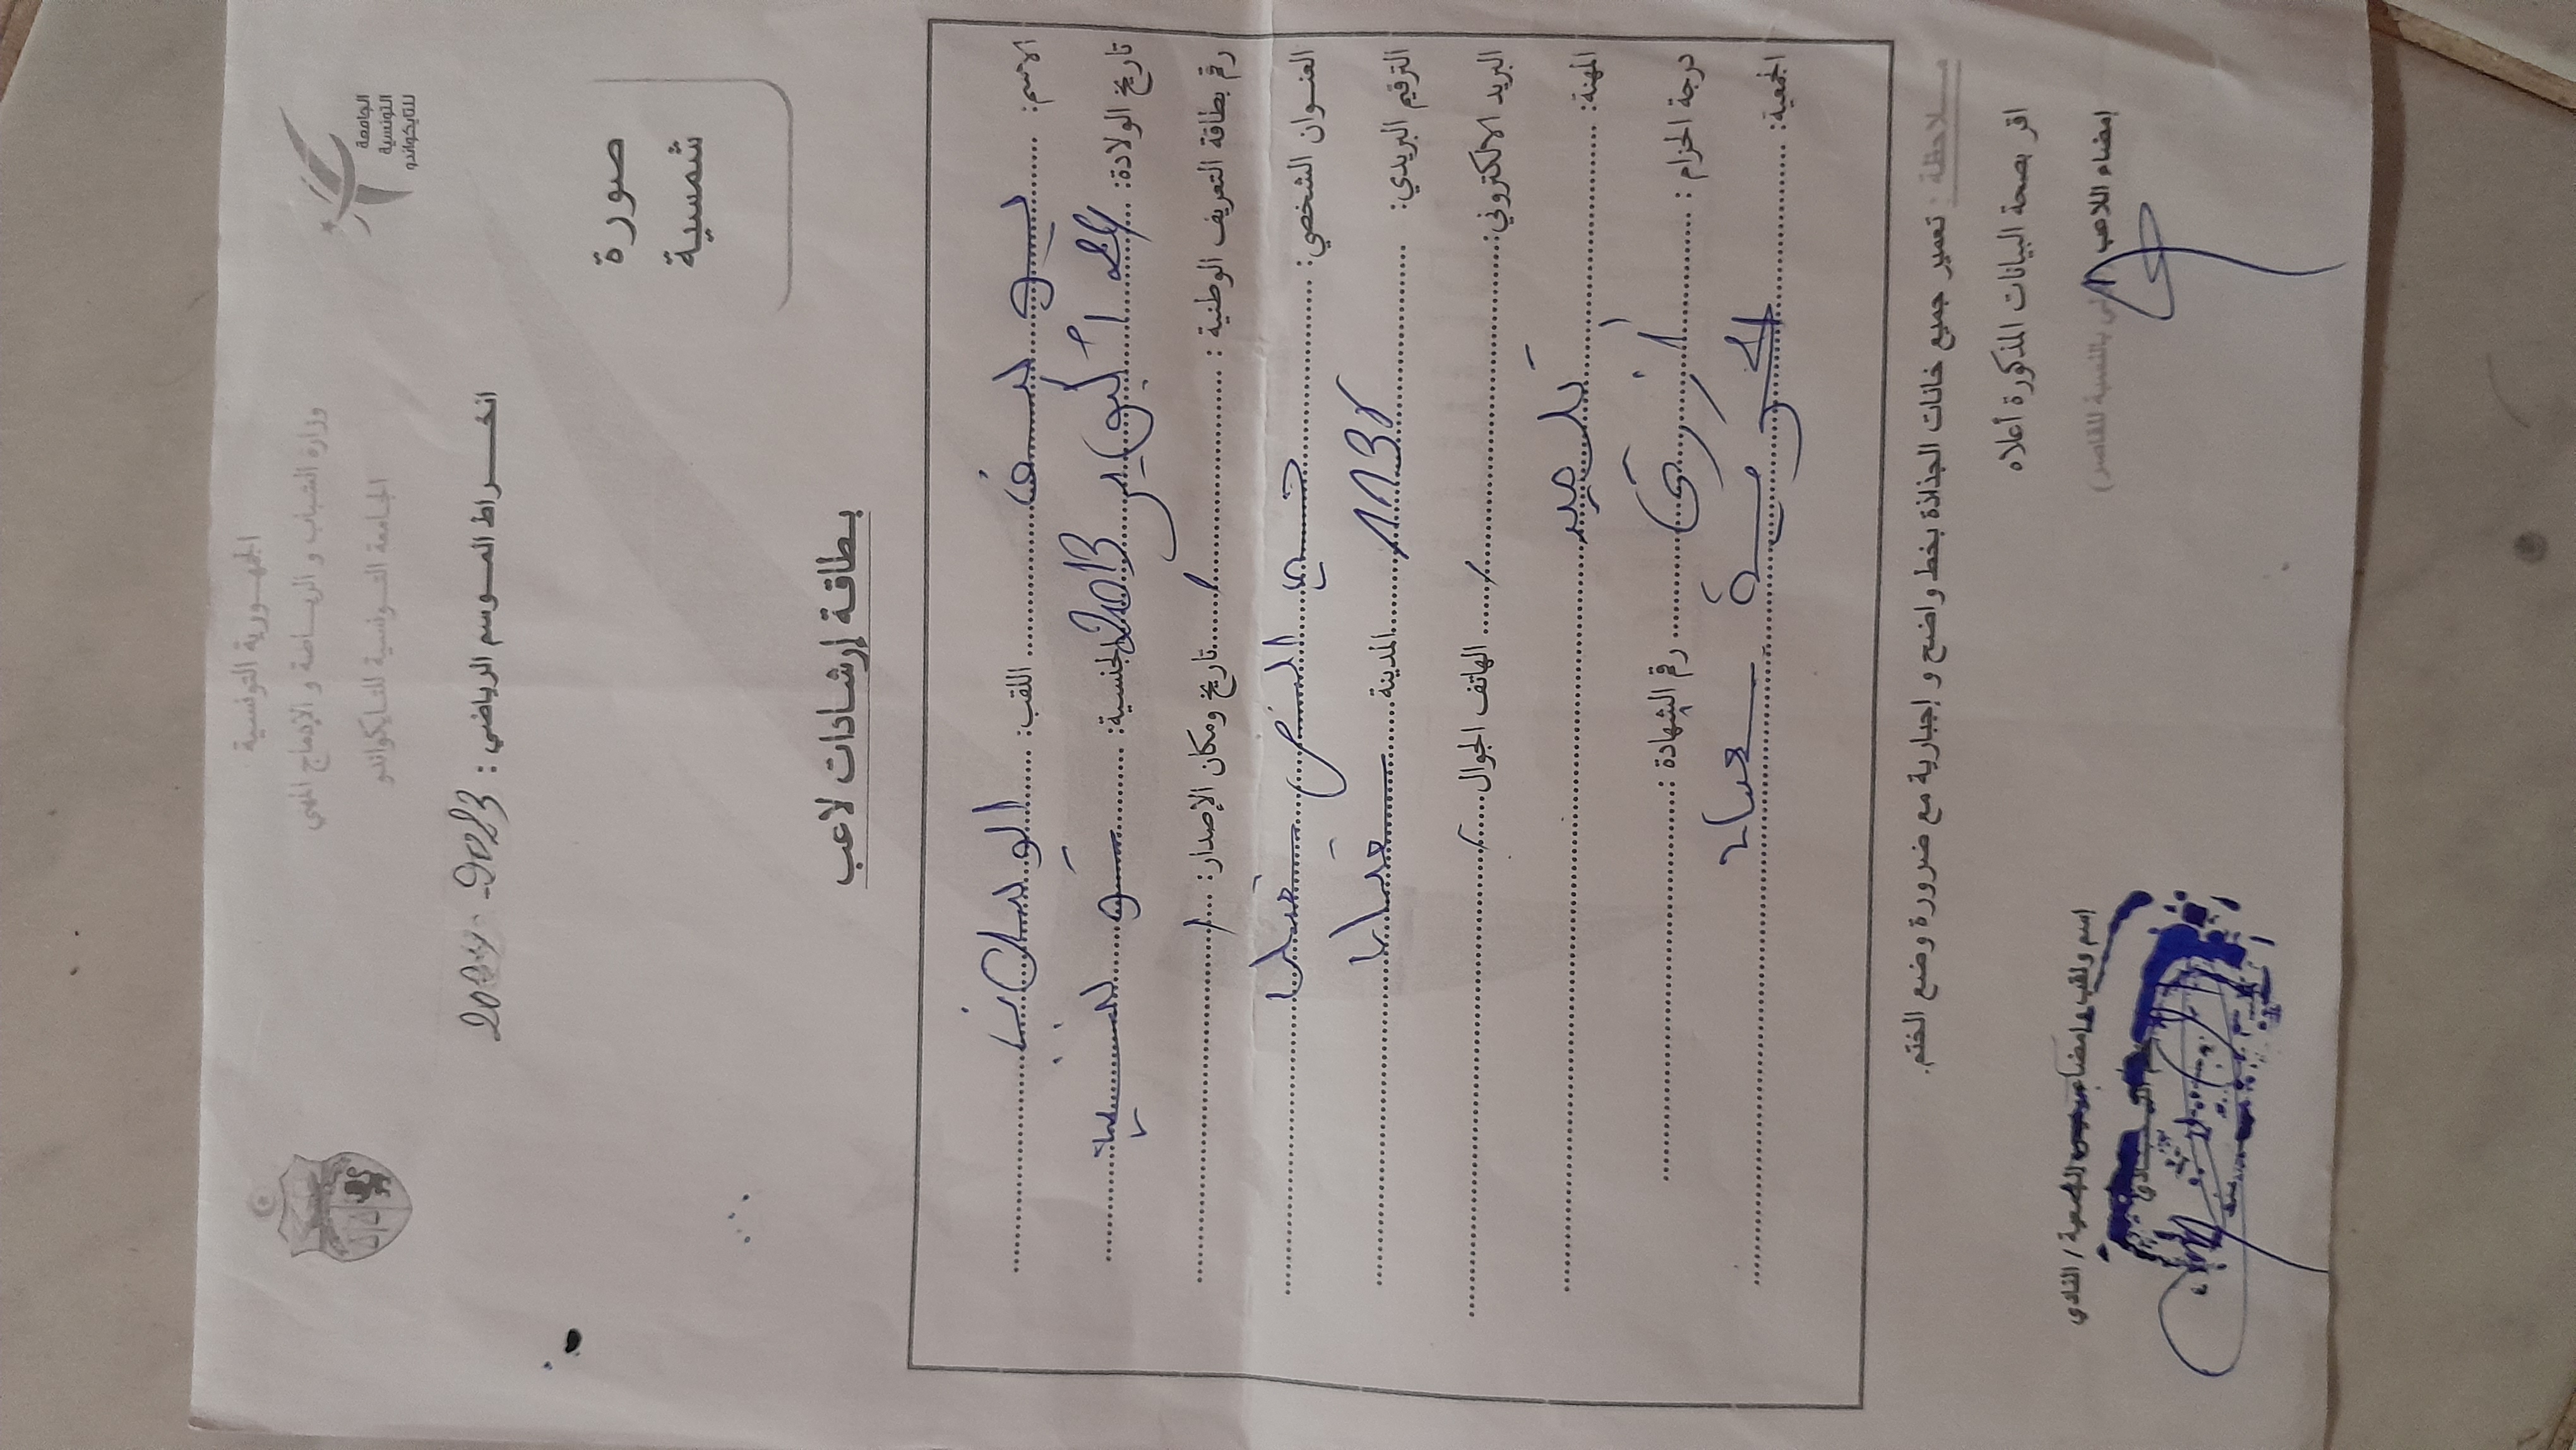 الجمهورية التونسية
وزارة الشباب و الرياضة و الإدماج المهني
الجامعة التونسية للتايكواندو
الجامعة
التونسية
للتايكواندو
انخراط الموسم الرياضي : 2023-
صورة
شمسية
بطاقة إرشادات لاعب
الاسم: يوسف اللقب: الوسلاتي
تاريخ الولادة: 24 أكتوبر 2013 الجنسية: تونسية
رقم بطاقة التعريف الوطنية : / تاريخ ومكان الإصدار: /
العنوان الشخصي: حي
الترقيم البريدي: 1132 المدينة
البريد الالكتروني: / الهاتف الجوال /
المهنة: تلميذ
درجة الحزام : أزرق رقم الشهادة :
الجمعية:
ملاحظة : تعمير جميع خانات الجذاذة بخط واضح و إجبارية مع ضرورة وضع الختم.
اقر بصحة البيانات المذكورة أعلاه
إمضاء اللاعب
بالنسبة للقاصر)
اسم ولقب الجمعية / النادي